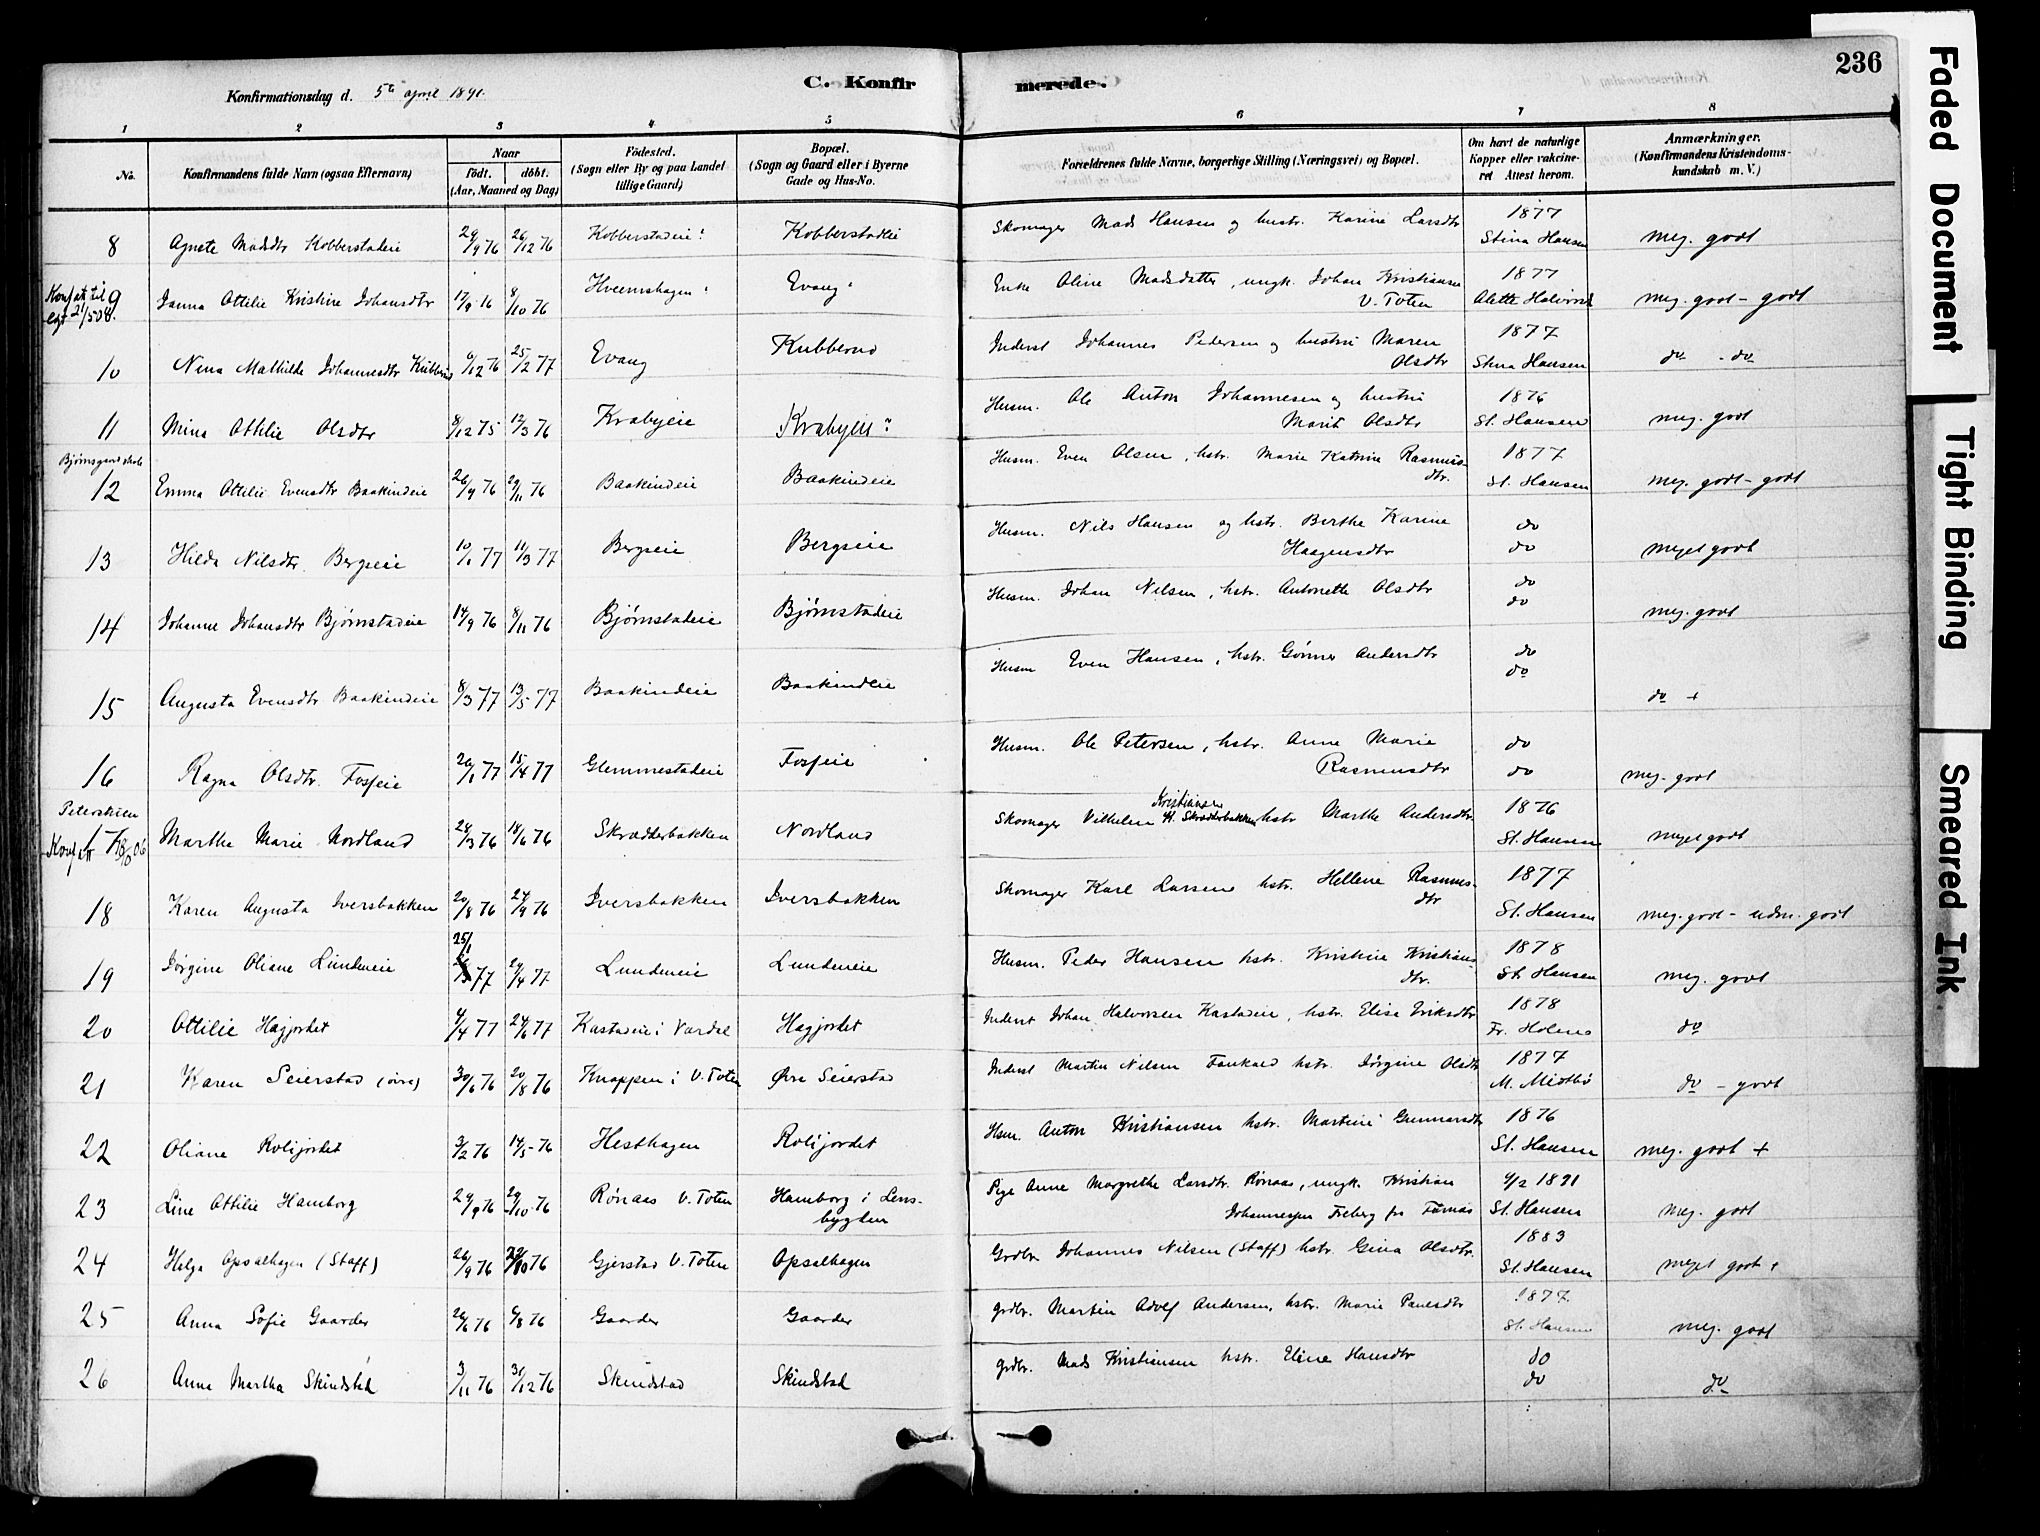 236
Faded Document
Tight Binding
Smeared Ink
Konfirmationsdag d. 5te april 1891.
C. Konfirmerede.
1 2 3 4 5 6 7 8
No.
Konfirmandens fulde Navn (ogsaa Efternavn)
Naar
födt. döbt.
(Aar, Maaned og Dag)
Födested.
(Sogn eller By og paa Landet
tillige Gaard)
Bopæl.
(Sogn og Gaard eller i Byerne
Gade og Hus-No.
Forældrenes fulde Navne, borgerlige Stilling (Næringsvei) og Bopæl.
Om havt de naturlige
Kopper eller vakcine-
ret Attest herom.
Anmærkninger.
(Konfirmandens Kristendoms-
kundskab m. V.)
8 Agnete Madsdtr Kobberstadeie 29/9 76 26/12 76 Kobberstadeie Kobberstadeie Skomager Mads Hansen og hustr. Karine Larsdtr 1877
Stina Hansen meg. godt
Konf. att til
9 Janna Attilie Kristine Johansdtr 17/9 76 8/10 76 Hveemshagen Evang Enke Oline Madsdatter, ungk. Johan Kristiansen
V. Toten 1877
Alette Halvorsd meg. godt - godt
10 Nina Mathilde Johannesdtr Kubberud 6/12 76 25/2 77 Evang Kubberud Inderst Johannes Pedersen og hustru Maren
Olsdtr 1877
Stina Hansen do - do
11 Mina Attilie Olsdtr 8/12 75 12/3 76 Krabyeie Krabyeie Husm. Ole Anton Johannesen og hustru
Marit Olsdtr 1876
St. Hansen meg. godt
12 Emma Attilie Evensdtr Baakindeie 26/9 76 29/11 76 Baakindeie Baakindeie Husm. Even Olsen, hstr. Marie Katrine Rasmus-
dtr. 1877
St. Hansen meg. godt - godt
13 Hilda Nilsdtr. Bergseie 10/1 77 11/3 77 Bergseie Bergseie Husm. Nils Hansen og hstr. Berthe Karine
Haagensdtr do
do meget godt
14 Johanne Johansdtr Bjørnstadeie 14/9 76 8/11 76 Bjørnstadeie Bjørnstadeie Husm. Johan Nilsen, hstr. Antonette Olsdtr do
do meg. godt
15 Augusta Evensdtr. Baakindeie 8/3 77 13/5 77 Baakindeie Baakindeie Husm Even Hansen, hstr. Andersdtr do
do do +
16 Ragna Olsdtr. Fosseie 20/1 77 15/4 77 Glemmestadeie Fosseie Husm. Ole Petersen, hstr. Anne Marie
Rasmusdtr do
do meg. godt
17 Marthe Marie Nordland 24/3 76 18/6 76 Skrædderbakken Nordland Skomager Vilhelm Kristiansen Skrædderbakken hstr Marthe Andersdtr 1876
St. Hansen meget godt
18 Karen Augusta Iversbakken 20/8 76 24/9 76 Iversbakken Iversbakken Skomager Karl Larsen hstr. Hellene Rasmus-
dtr 1877
St. Hansen meg. godt - udm. godt
19 Jørgine Oliane Lundeneie 25/1 77 29/4 77 Lundeneie Lundeneie Husm. Peder Hansen hstr. Kristine Kristians-
dtr. 1878
St. Hansen meg. godt
20 Attilie Hagjordet 4/4 77 24/6 77 Kastadeie i Vardal Hagjordet Inderst Johan Halvorsen Kastadeie, hstr. Elise Eriksdtr 1878
Fr. Holms do
21 Karen Seierstad (øvre) 30/6 76 20/8 76 Knappen i V. Toten Øvre Seierstad Inderst Martin Nilsen Faukald hstr. Jørgine Olsdtr 1877
M. Midtbø do - godt
22 Oliane Rolijordet 3/2 76 14/5 76 Hesthagen Rolijordet Hsm. Anton Kristiansen hstr. Martine Gunnarsdtr 1876
St. Hansen meg. godt +
23 Line Attilie Hamborg 24/9 76 29/10 76 Rønaas V. Toten Hamborg i Lens-
bygden Pige Anne Margrethe Larsdtr. Rønaas, ungk. Kristian
Johannessen Freberg fra 4/2 1891
St. Hansen meg. godt
24 Helga Opsalhagen (Staff) 26/9 76 29/10 76 Gjerstad V. Toten Opsalhagen Grdbr Johannes Nilsen (Staff) hstr. Gina Olsdtr. 1883
St. Hansen meget godt +
25 Anna Sofie Gaarder 20/6 76 6/8 76 Gaarder Gaarder grdbr. Martin Adolf Andersen, hstr. Marie Paulsdtr 1877
St. Hansen meg. godt
26 Anne Martha Skindstad 3/11 76 31/12 76 Skindstad Skindstad grdbr. Mads Kristiansen hstr. Eline Hansdtr do
do do